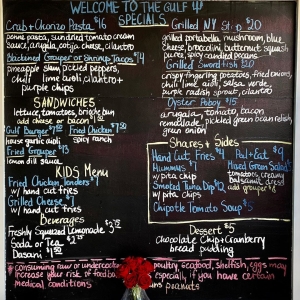 WELCOME TO THE GULF
SPECIALS
Crab + Chorizo Pasta $16
penne pasta, sundried tomato cream
sauce, arugula, cotija cheese, cilantro
Blackened Grouper or Shrimp Tacos $14
pineapple slaw, pickled peppers,
chili lime aioli, cilantro +
purple chips
SANDWICHES
lettuce, tomatoes, bright bun
add cheese or bacon
Gulf Burger Fried Chicken
house garlic aioli spicy ranch
Fried Grouper $13
lemon dill sauce
KIDS Menu
Fried Chicken Tenders $7
w/ hand cut fries
Grilled Cheese $7
w/ hand cut fries
Beverages
Freshly Squeezed Lemonade
Soda or Tea
Dasani
Grilled NY Strip $20
grilled portabella mushroom, blue
cheese, broccolini, butternut squash
puree, spicy candied pecans
Grilled Swordfish $20
crispy fingerling potatoes, fried onions,
chili lime aioli, salsa verde
purple radish sprout, cilantro
Oyster Poboy $15
arugula, tomato, bacon
remoulade, pickled green bean relish,
green onion
Shares + Sides
Hand Cut Fries $4
Hummus
w/ pita chip
Smoked Tuna Dip
w/ pita chips
Chipotle Tomato Soup $5
Mixed Green Salad
tomatoes, creamy
balsamic dressing
add grouper
Dessert $5
Chocolate Chip + Cranberry
bread pudding
* consuming raw or undercooked poultry, seafood, shellfish, eggs may
increase your risk of especially if you have certain
medical conditions peanuts